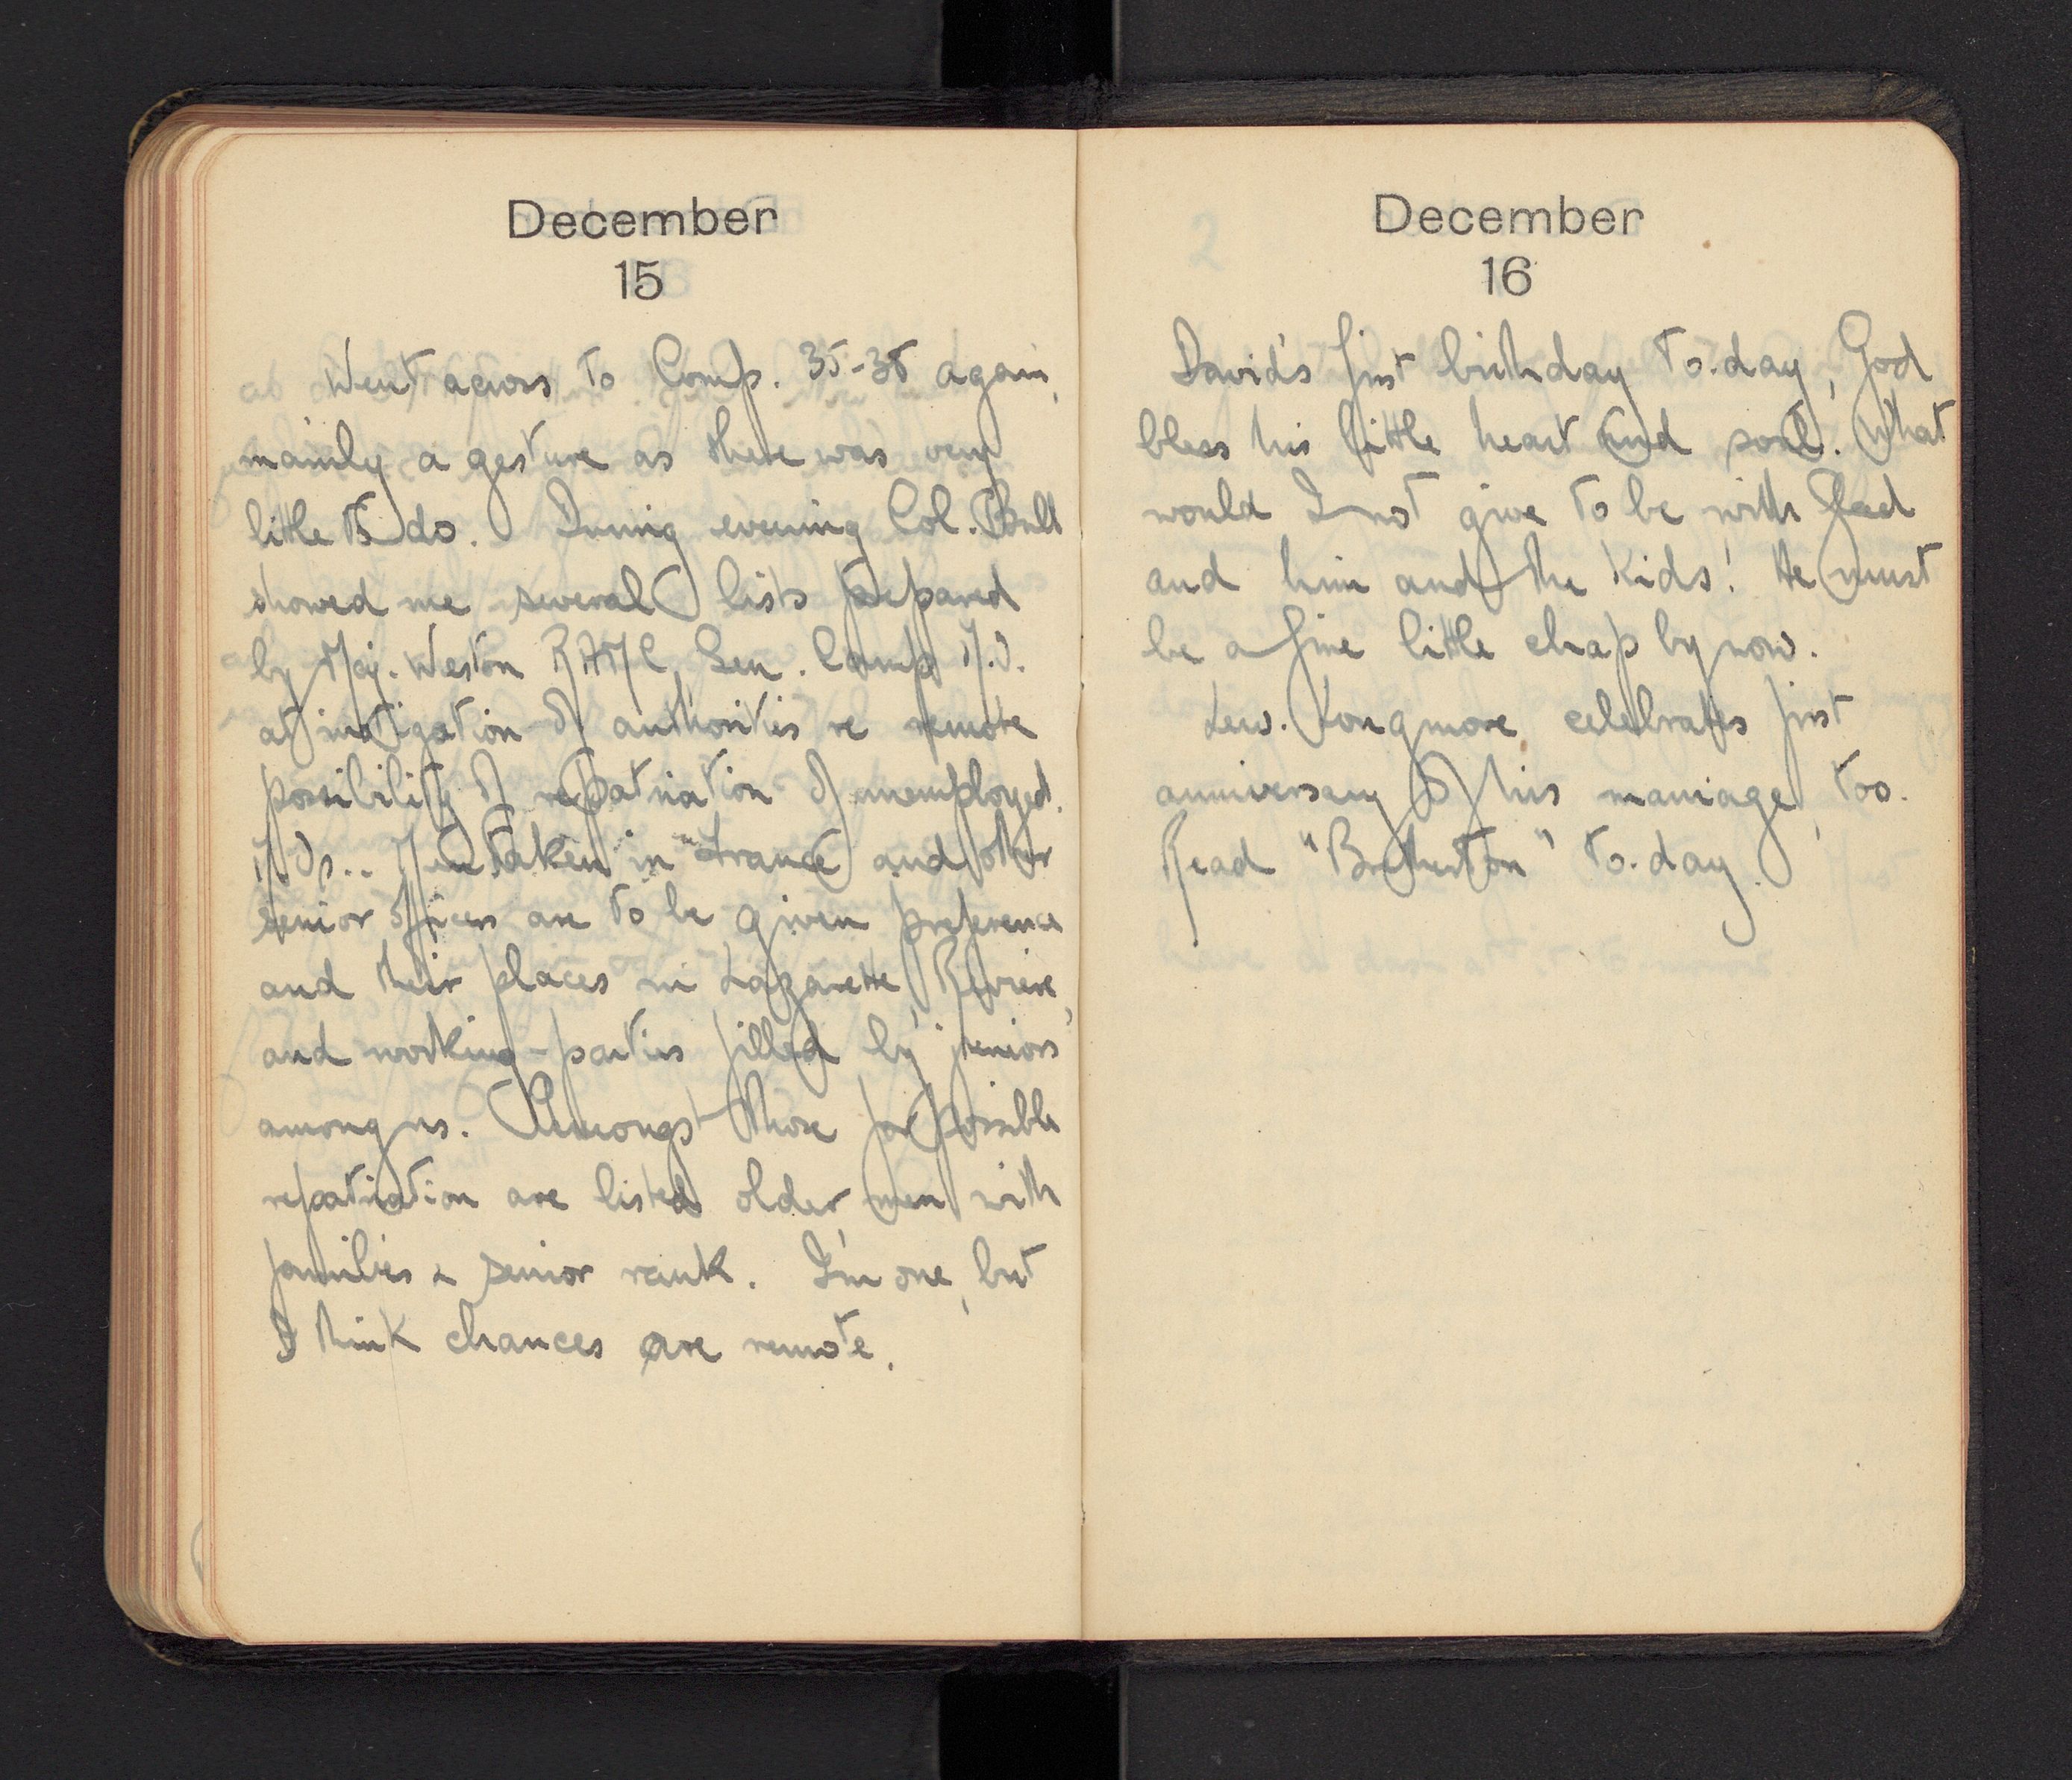 December
15
Went across to Comp. 35-38 again,
mainly a gesture as there was very
little to do. During evening Col. Bull
showed me several lists prepared
by Maj. Weston RAMC, Sen. Camp M.O.
at instigation of authorities re remote
possibility of repatriation of unemployed.
M.Os.. Men taken in France and other
senior officers are to be given preference
and their places in Lazarette, Reviere,
and working-parties filled by juniors
among us. Amongst those for possible
repatriation are listed older men with
families & senior rank. I'm one, but
I think chances are remote.
December
16
David's first birthday to-day, God
bless his little heart and soul. What
would I not give to be with
and him and the kids! He must
be a fine little chap by now.
Lew. Longmore celebrates first
anniversary of his marriage, too.
Read "Bretherton" to-day.